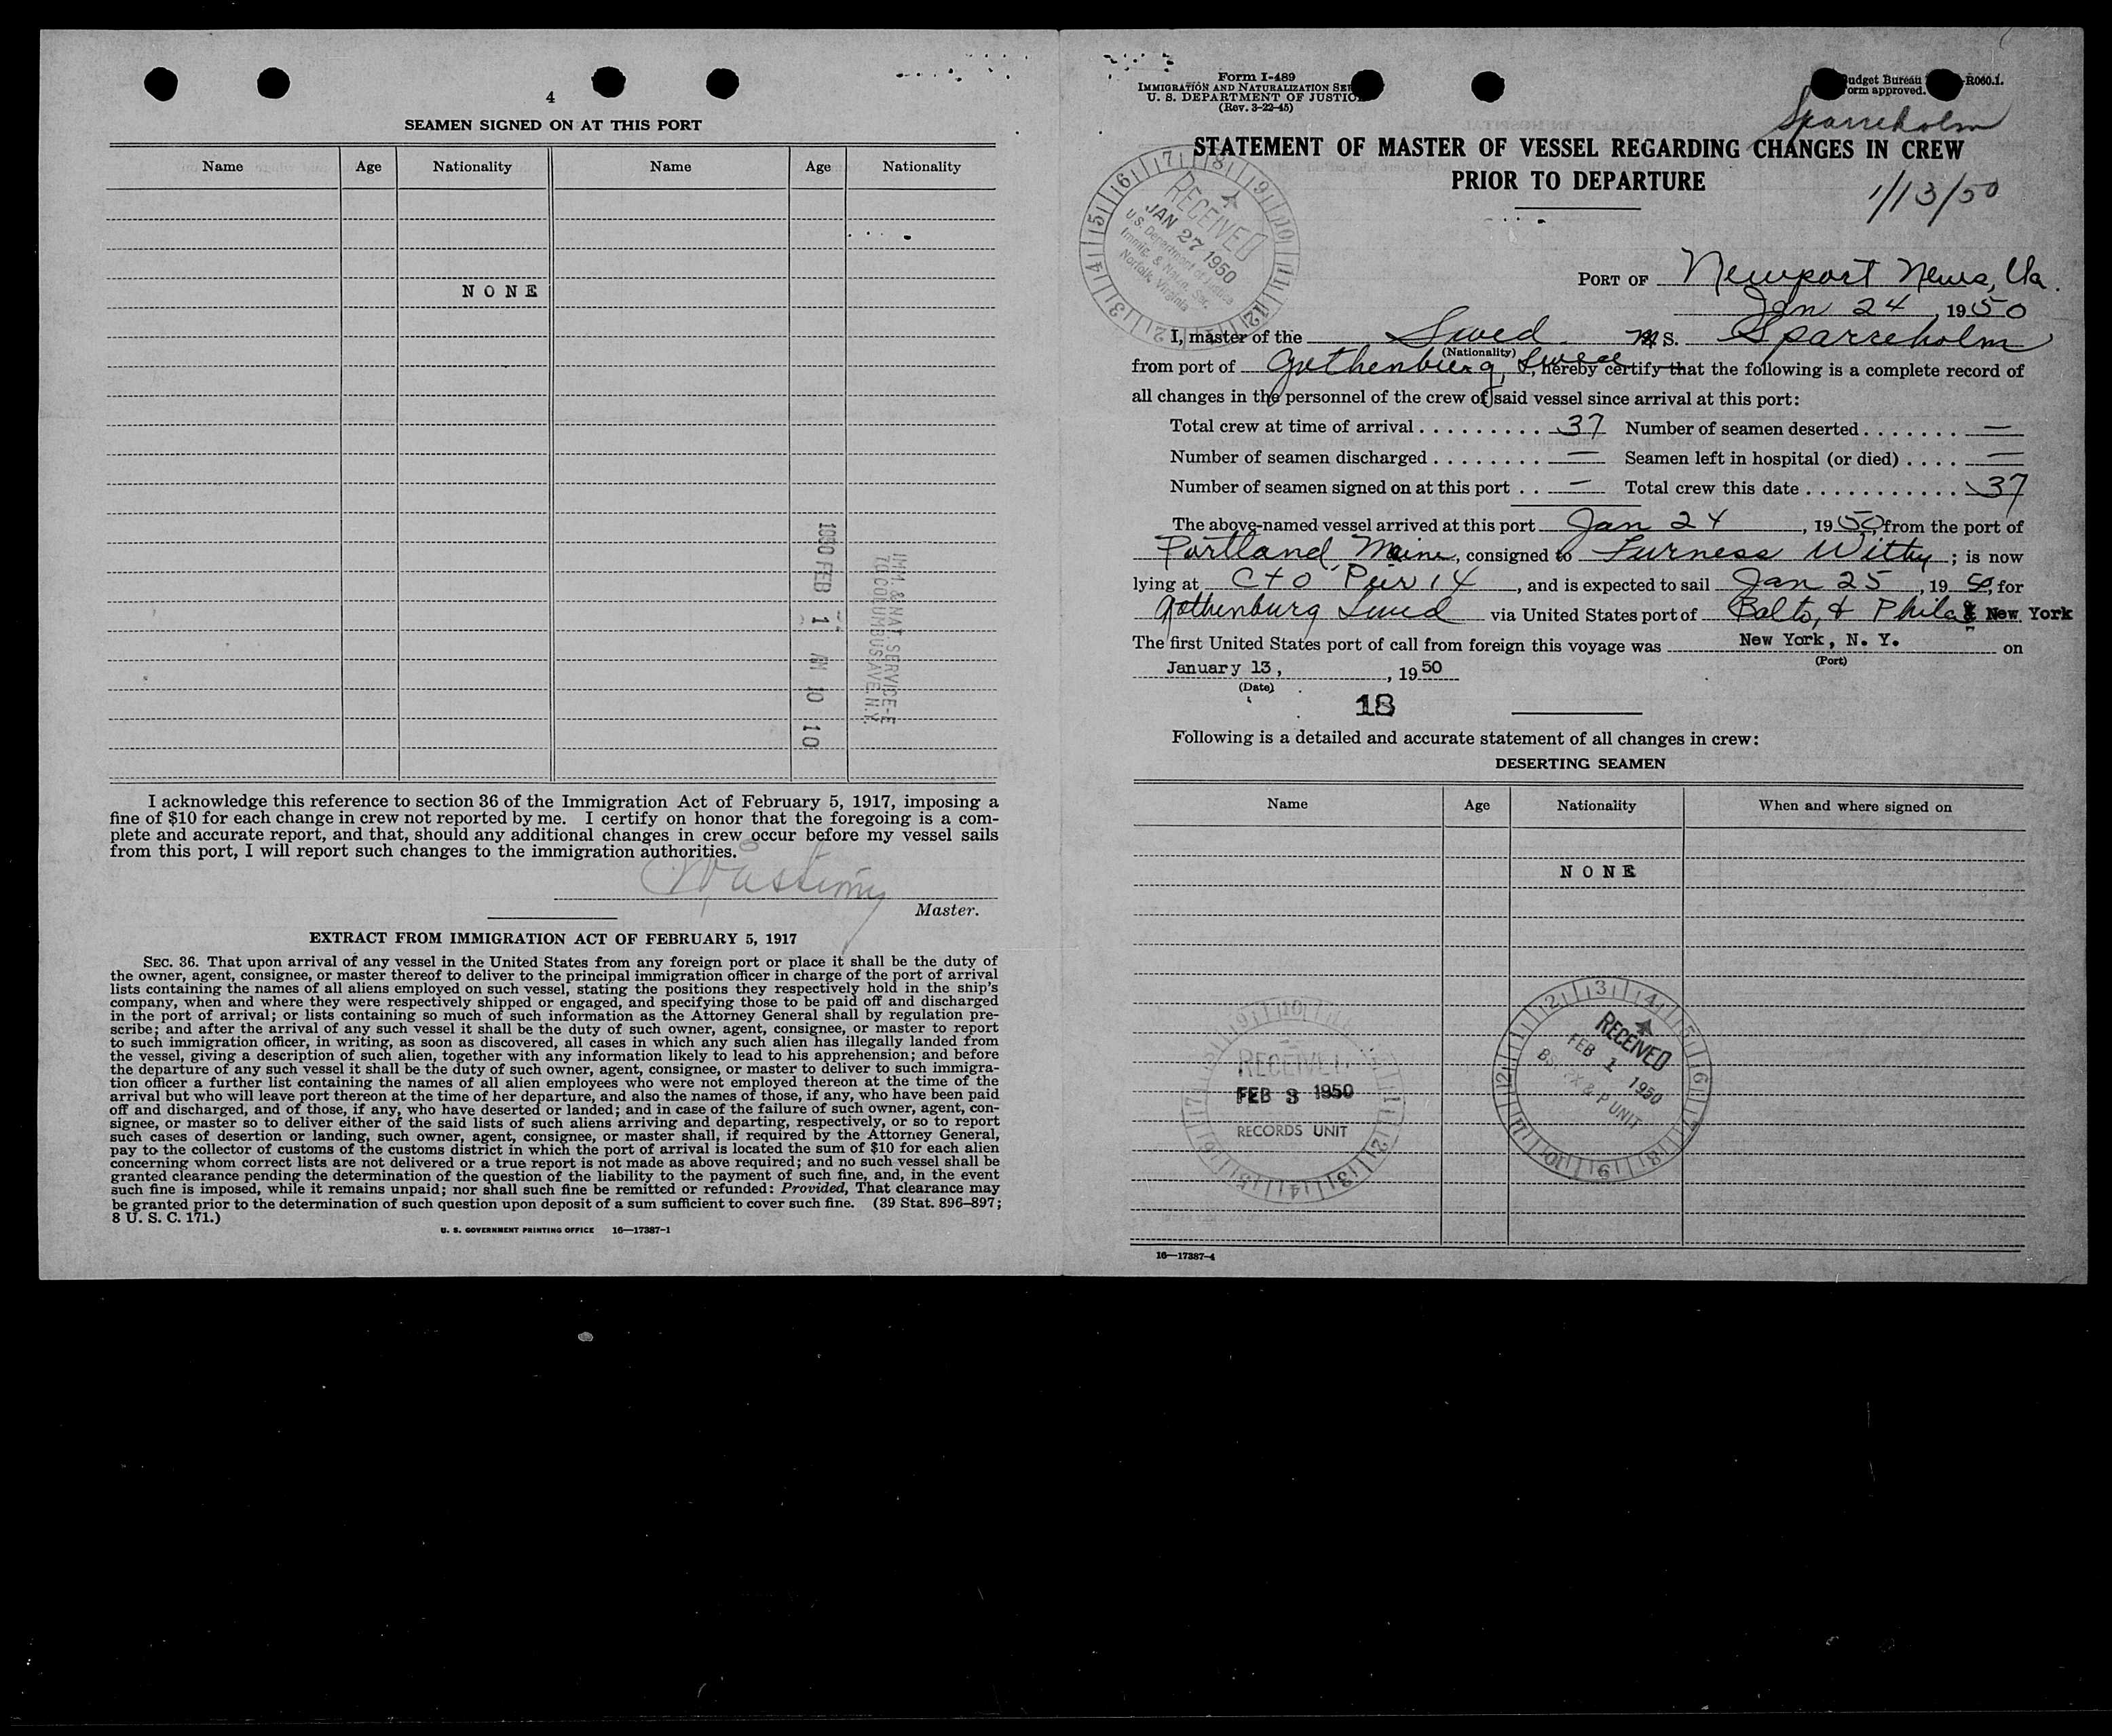 4
SEAMEN SIGNED ON AT THIS PORT
Name Age Nationality Name Age Nationality
NONE
1950 FEB 1 AM 10 10
IMM. & NAT. SERVICE-E
70 COLUMBUS AVE. N.Y.
I acknowledge this reference to section 36 of the Immigration Act of February 5, 1917, imposing a
fine of $10 for each change in crew not reported by me. I certify on honor that the foregoing is a com-
plete and accurate report, and that, should any additional changes in crew occur before my vessel sails
from this port, I will report such changes to the immigration authorities.
Master.
EXTRACT FROM IMMIGRATION ACT OF FEBRUARY 5, 1917
SEC. 36. That upon arrival of any vessel in the United States from any foreign port or place it shall be the duty of
the owner, agent, consignee, or master thereof to deliver to the principal immigration officer in charge of the port of arrival
lists containing the names of all aliens employed on such vessel, stating the positions they respectively hold in the ship's
company, when and where they were respectively shipped or engaged, and specifying those to be paid off and discharged
in the port of arrival; or lists containing so much of such information as the Attorney General shall by regulation pre-
scribe; and after the arrival of any such vessel it shall be the duty of such owner, agent, consignee, or master to report
to such immigration officer, in writing, as soon as discovered, all cases in which any such alien has illegally landed from
the vessel, giving a description of such alien, together with any information likely to lead to his apprehension; and before
the departure of any such vessel it shall be the duty of such owner, agent, consignee, or master to deliver to such immigra-
tion officer a further list containing the names of all alien employees who were not employed thereon at the time of the
arrival but who will leave port thereon at the time of her departure, and also the names of those, if any, who have been paid
off and discharged, and of those, if any, who have deserted or landed; and in case of the failure of such owner, agent, con-
signee, or master so to deliver either of the said lists of such aliens arriving and departing, respectively, or so to report
such cases of desertion or landing, such owner, agent, consignee, or master shall, if required by the Attorney General,
pay to the collector of customs of the customs district in which the port of arrival is located the sum of $10 for each alien
concerning whom correct lists are not delivered or a true report is not made as above required; and no such vessel shall be
granted clearance pending the determination of the question of the liability to the payment of such fine, and, in the event
such fine is imposed, while it remains unpaid; nor shall such fine be remitted or refunded: Provided, That clearance may
be granted prior to the determination of such question upon deposit of a sum sufficient to cover such fine. (39 Stat. 896–897;
8 U. S. C. 171.)
U. S. GOVERNMENT PRINTING OFFICE 16—17387-1
Form I-489
IMMIGRATION AND NATURALIZATION SER
U. S. DEPARTMENT OF JUSTIC
(Rev. 3-22-45)
udget Bureau -R060.1.
orm approved.
Sparreholm
STATEMENT OF MASTER OF VESSEL REGARDING CHANGES IN CREW
PRIOR TO DEPARTURE
1/13/50
RECEIVED
JAN 27 1950
U.S. Department of Justice
Immig. & Natn. Ser.
Norfolk, Virginia
PORT OF Newport News, Va.
Jan 24, 1950
I, master of the Swed. M S. Sparreholm
(Nationality)
from port of Gothenburg, Swed, hereby certify that the following is a complete record of
all changes in the personnel of the crew of said vessel since arrival at this port:
Total crew at time of arrival . . . . . . . . . 37 Number of seamen deserted . . . . . . . —
Number of seamen discharged . . . . . . . . — Seamen left in hospital (or died) . . . . —
Number of seamen signed on at this port . . — Total crew this date . . . . . . . . . . . 37
The above-named vessel arrived at this port Jan 24, 1950, from the port of
Portland, Maine, consigned to Furness Withy; is now
lying at C+O Pier 14, and is expected to sail Jan 25, 1950, for
Gothenburg Swed via United States port of Balto, & Phila & New York
The first United States port of call from foreign this voyage was New York, N. Y. on
(Port)
January 13, , 1950
(Date)
18
Following is a detailed and accurate statement of all changes in crew:
DESERTING SEAMEN
Name Age Nationality When and where signed on
NONE
RECEIVED
FEB 3 1950
RECORDS UNIT
RECEIVED
FEB 1 1950
& P UNIT
16—17387-4